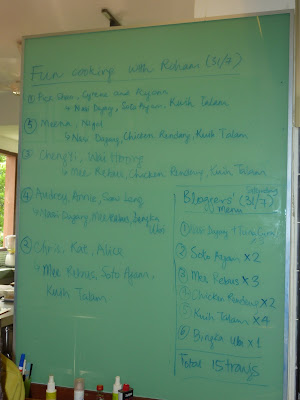 Fun cooking with Rohani (31/7)
① Pea Chan, Cyrene and Ryann
↳ Nasi Dagang, Soto Ayam, Kuih Talam
⑤ Meena, Nigel
↳ Nasi Dagang, Chicken Rendang, Kuih Talam
Cheng Yi, Wai Hoong
↳ Mee Rebus, Chicken Rendang, Kuih Talam
④ Audrey, Annie, Siew Leng
↳ Nasi Dagang, Mee Rebus, Bingka Ubi
③ Chris, Kat, Alice
↳ Mee Rebus, Soto Ayam,
Kuih Talam
Bloggers' (31/7)
Menu
① Nasi Dagang
② Soto Ayam × 2
③ Mee Rebus × 3
④ Chicken Rendang × 2
⑤ Kuih Talam × 4
⑥ Bingka Ubi × 1
Total 15 trays